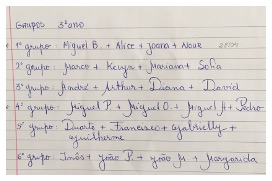 GRUPOS 3º ano
1º grupo: Miguel B. + Alice + Joana + Nour
2º grupo: Marco + Keyla + Mariana + Sofia
3º grupo: André + Arthur + Diana + David
4º grupo: Miguel P. + Miguel O. + Miguel A + Pedro
5º grupo: Duarte + Francisco + Gabrielly +
Guilherme
6º grupo: Inês + João P. + João M + Margarida